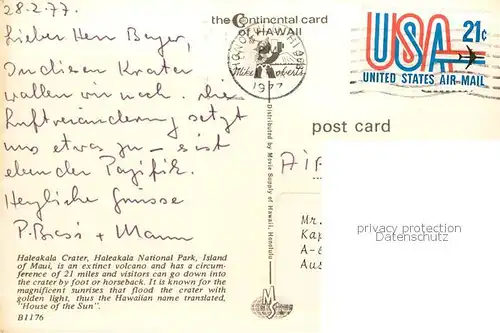 28.2.77.
Lieber Herr Bayer,
In diesen Krater
wallen wir noch. Die
Luftveränderung setzt
uns etwas zu – ist
eben der Pazifik.
Herzliche Grüsse
P. + Mann
Haleakala Crater, Haleakala National Park, Island
of Maui, is an extinct volcano and has a circum-
ference of 21 miles and visitors can go down into
the crater by foot or horseback. It is known for the
magnificent sunrises that flood the crater with
golden light, thus the Hawaiian name translated,
"House of the Sun".
B1176
the Continental card
of HAWAII
Mike Roberts
1977
Distributed by Movie Supply of Hawaii, Honolulu
MS
USA 21¢
UNITED STATES AIR MAIL
post card
AIR
Mr.
Kap
A-6
Aus
privacy protection
Datenschutz